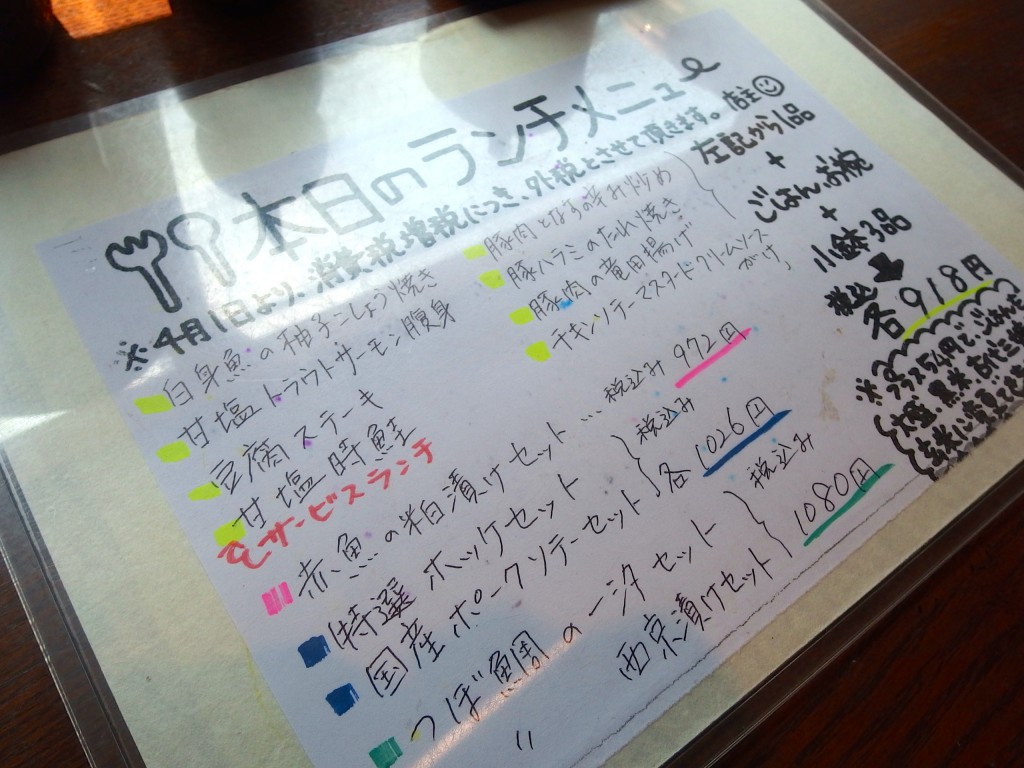 本日のランチメニュー
※4月1日より、消費税増税につき、外税とさせて頂きます。店主
白身魚の柚子こしょう焼き
甘塩トラウトサーモン腹身
豆腐ステーキ
甘塩時鮭
豚肉となすの辛み炒め
豚ハラミのたれ焼き
豚肉の竜田揚げ
チキンソテーマスタードクリームソース
がけ
左記から1品
+
ごはんお椀
+
小鉢3品
税込
各918円
※プラス54円で、ごはんを
サービスランチ
赤魚の粕漬けセット…税込み972円
特選ホッケセット
国産ポークソテーセット
税込み
各1026円
つぼ魚周の一汐セット
〃 西京漬けセット
税込み
1080円